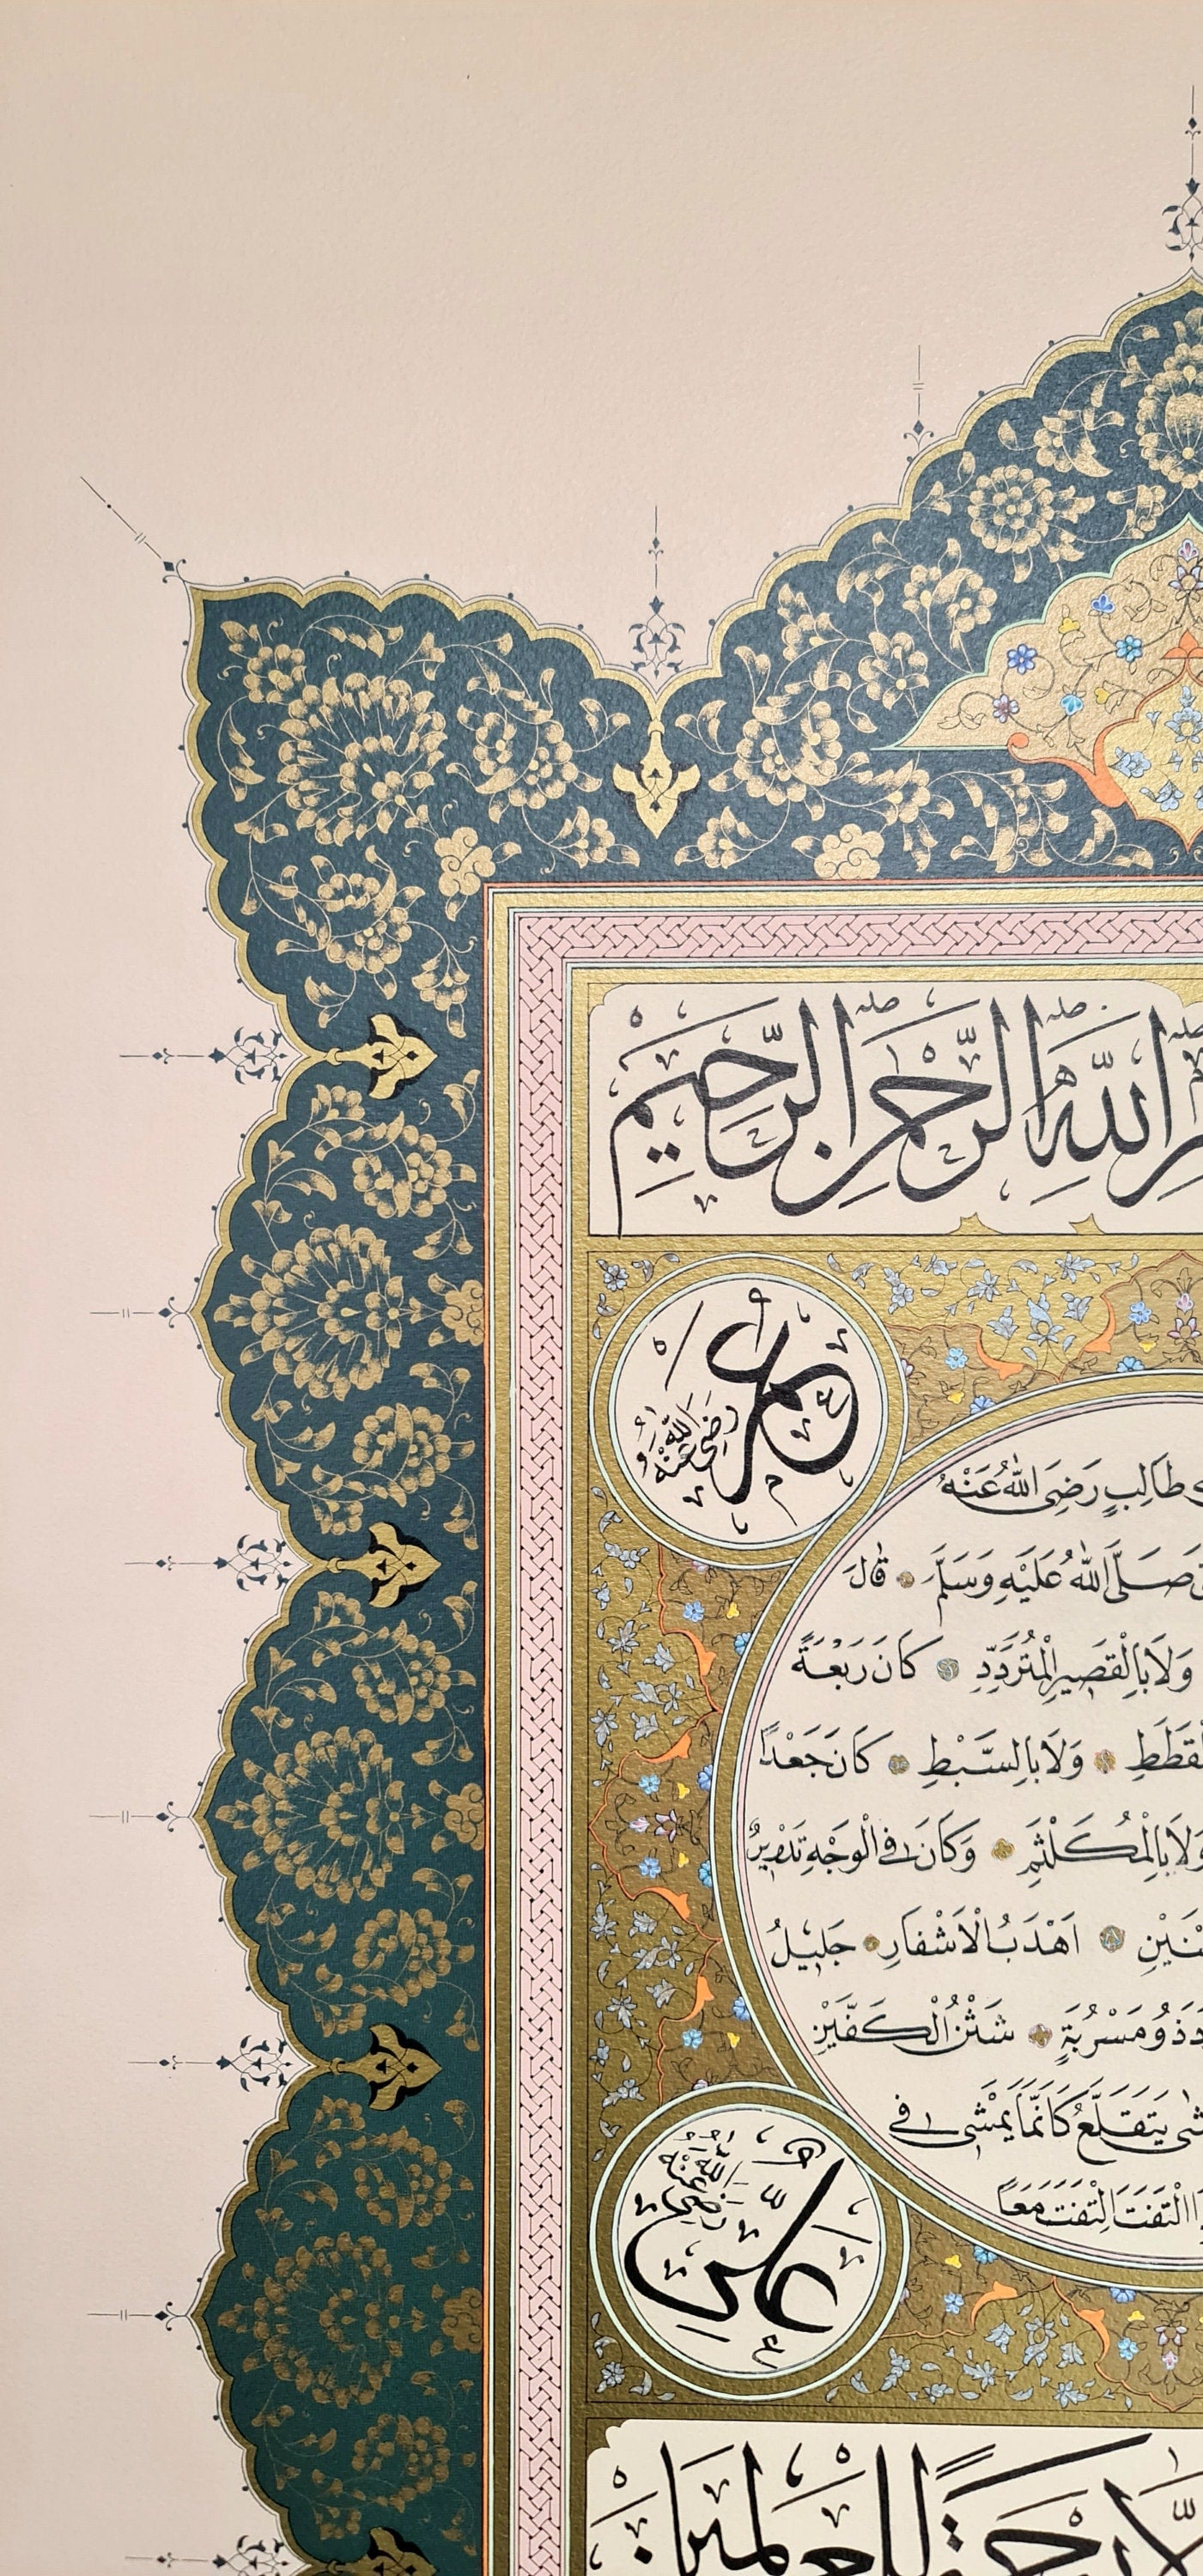 اللّٰهِ الرَّحْمٰنِ الرَّحِيمِ
عُمَر رَضِيَ اللّٰهُ عَنْهُ
طَالِبٍ رَضِيَ اللّٰهُ عَنْهُ
صَلَّى اللّٰهُ عَلَيْهِ وَسَلَّمَ قَالَ
وَلَا بِالْقَصِيرِ الْمُتَرَدِّدِ كَانَ رَبْعَةً
الْقَطَطِ وَلَا بِالسَّبْطِ كَانَ جَعْدًا
وَلَا بِالْمُكَلْثَمِ وَكَانَ فِي الْوَجْهِ تَدْوِيرٌ
اَهْدَبُ الْاَشْفَارِ جَلِيلُ
ذُو مَسْرُبَةٍ شَثْنُ الْكَفَّيْنِ
يَتَقَلَّعُ كَاَنَّمَا يَمْشِي فِي
الْتَفَتَ الْتَفَتَ مَعًا
عَلِي رَضِيَ اللّٰهُ عَنْهُ
رَحْمَةً لِلْعَالَمِينَ